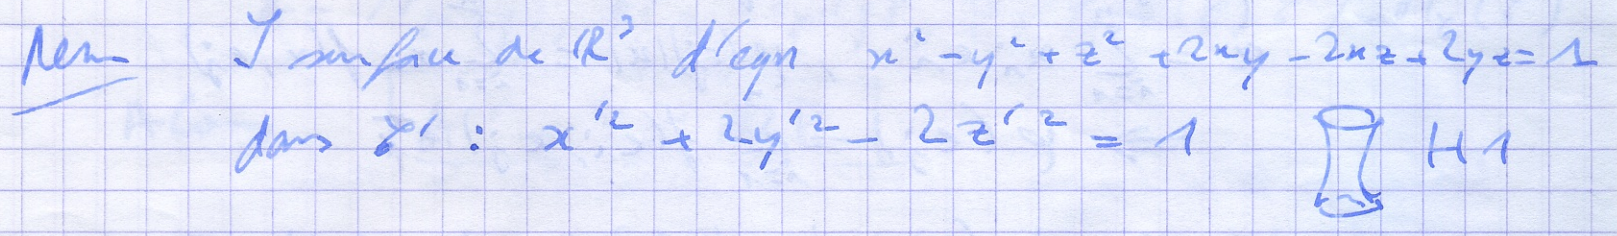 Rem S surface de R³ d'eqn x² - y² + z² + 2xy - 2xz + 2yz = 1
dans B' : x'² + 2y'² - 2z'² = 1 H1